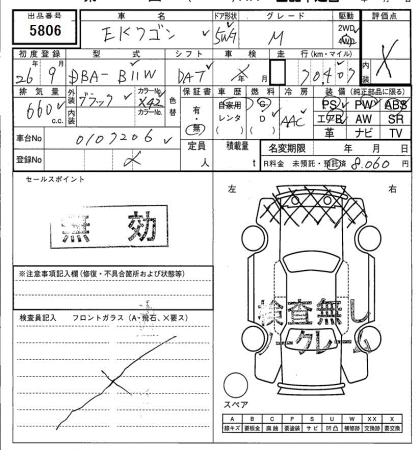 出品番号 車名 ドア形状 グレード 駆動 評価点
5806 EKワゴン 5W M 2WD 4WD X
初度登録 型式 シフト 車検 走行(km・マイル) 内
26年9月 DBA-B11W DAT X年月 70407 X
排気量 外装 カラーNo. 色替 保証書 車歴 燃料 冷房 装備(純正部品に限る)
660 c.c. 内装 ブラック X42 カラーNo. 有・無 自家用 レンタ G D AAC PS PW ABS
エアB AW SR
革 ナビ TV
車台No 0107206 定員 人 積載量 t 名変期限 年 月 日
登録No R料金 未預託・預託済 8,060円
セールスポイント
無効
左 右
※注意事項記入欄(修復・不具合箇所および状態等)
検査員記入 フロントガラス(A・飛石、X要ス)
検査無し
ノークレーム
スペア
A B C P S U W X XX X
線キズ 要板金 腐蝕 要塗装 サビ 凹凸 補修跡 交換跡 要交換